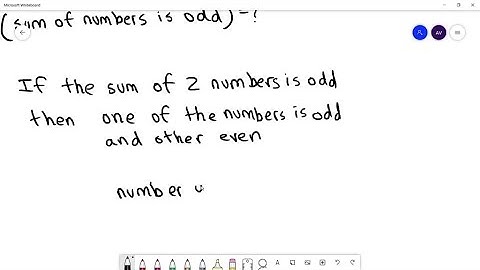 Microsoft Whiteboard
(sum of numbers is odd) - ?
AV
If the sum of 2 numbers is odd
then one of the numbers is odd
and other even
number